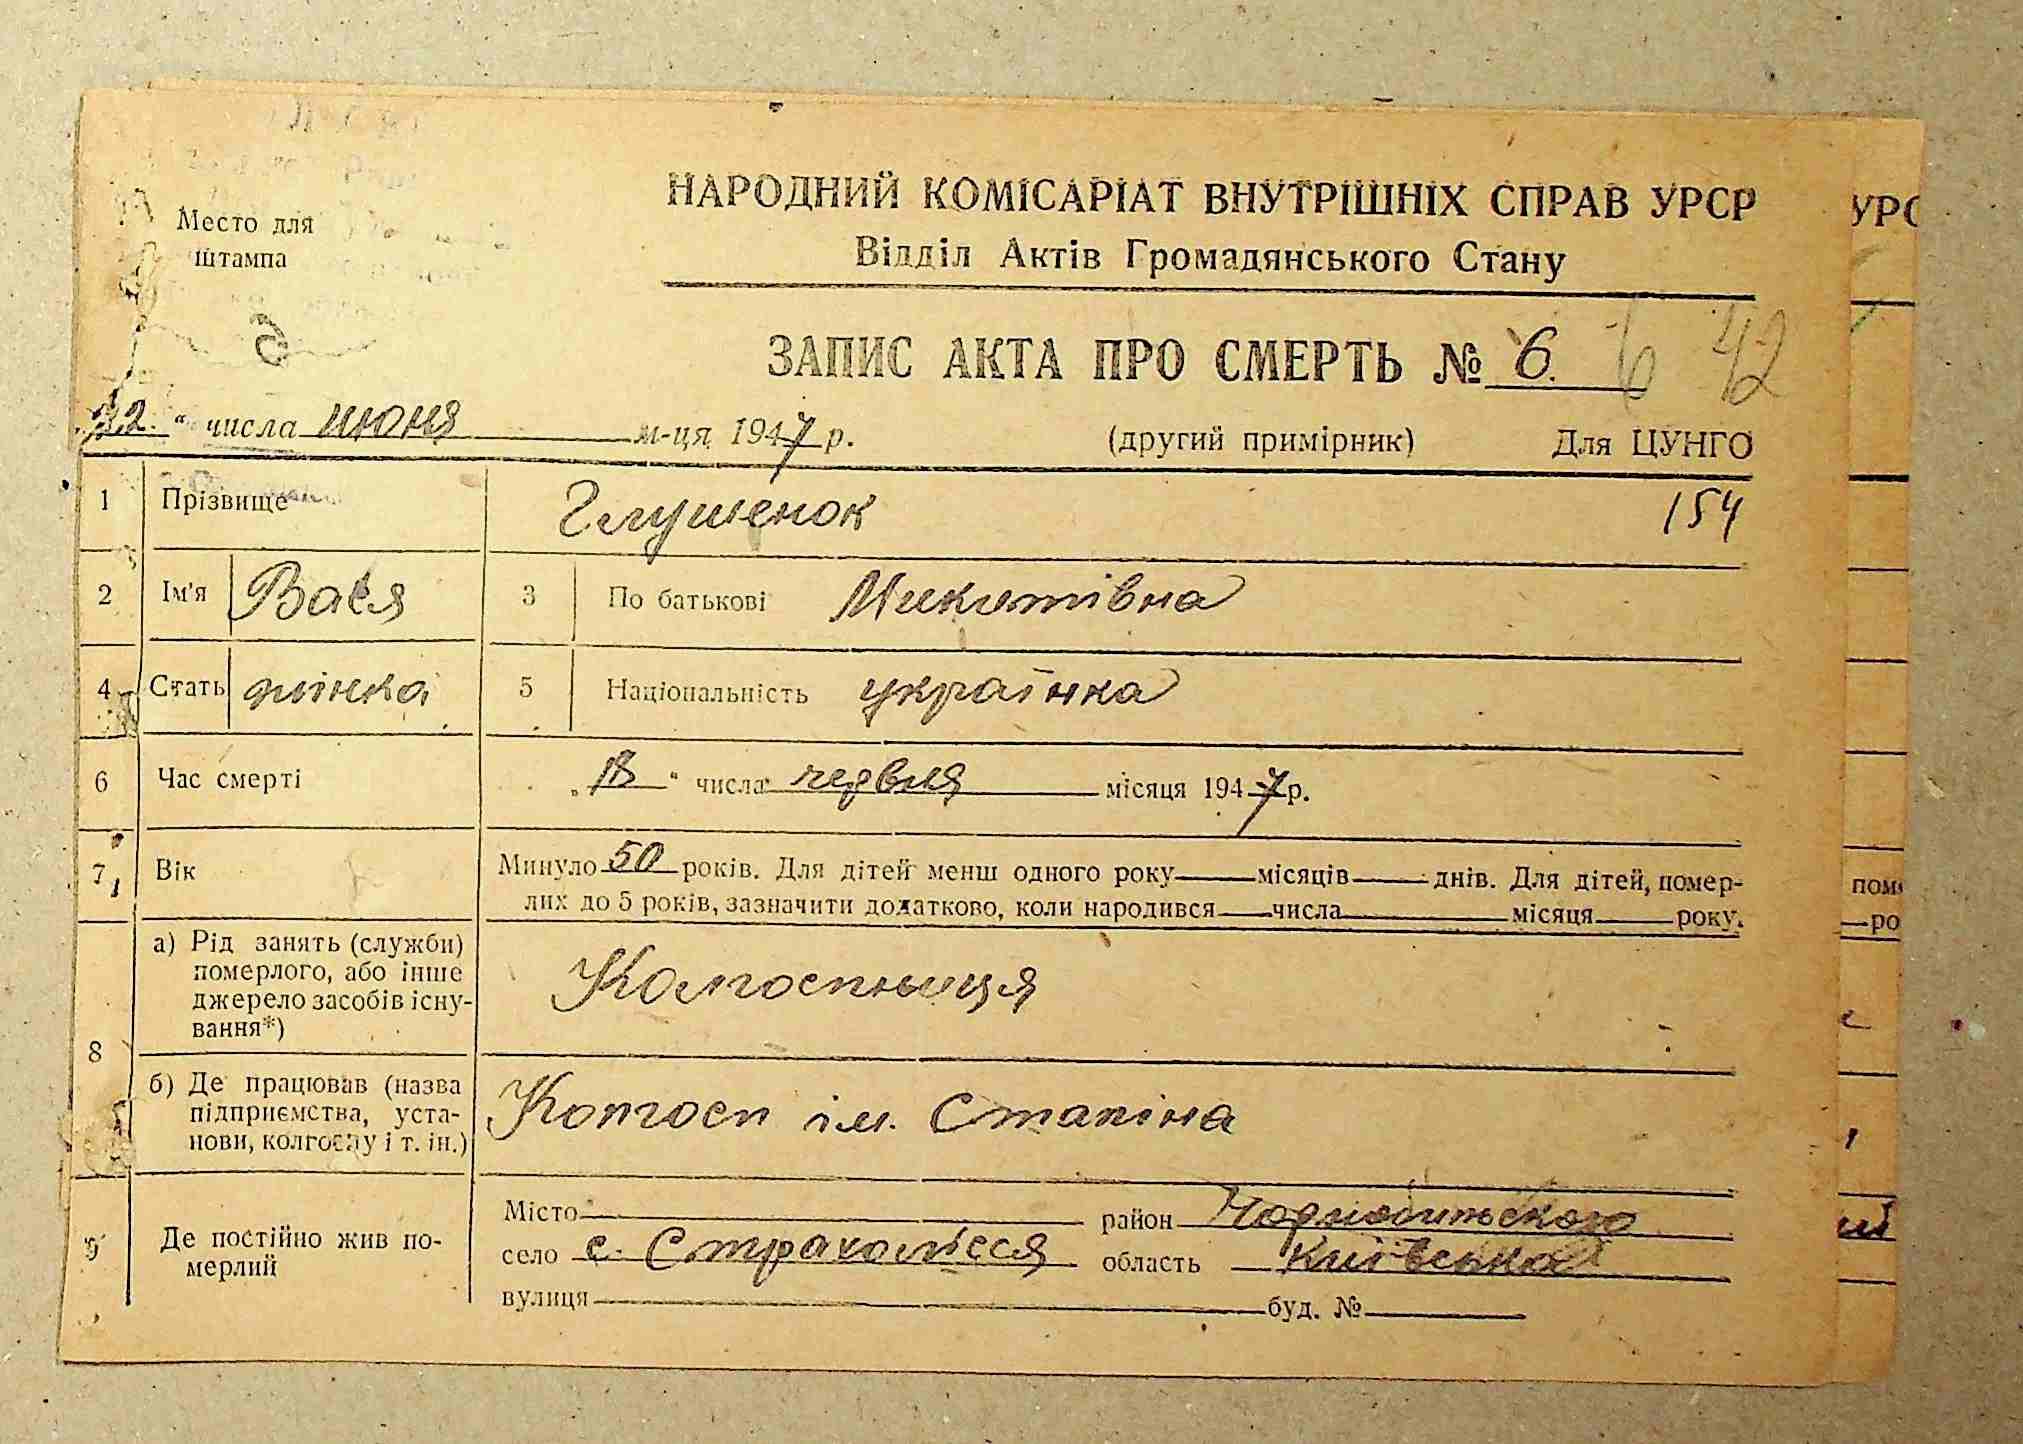 Место для
штампа
НАРОДНИЙ КОМІСАРІАТ ВНУТРІШНІХ СПРАВ УРСР
Відділ Актів Громадянського Стану
ЗАПИС АКТА ПРО СМЕРТЬ № 6. 6 42
22 " числа июня м-ця 1947 р. (другий примірник) Для ЦУНГО
1 Прізвище Глушенок 154
2 Ім'я Вася 3 По батькові Микитівна
4 Стать жінка 5 Національність українка
6 Час смерті " числа червня місяця 1947 р.
7 Вік Минуло 50 років. Для дітей менш одного року місяців днів. Для дітей, помер-
лих до 5 років, зазначити додатково, коли народився числа місяця року.
8 а) Рід занять (служби)
померлого, або інше
джерело засобів існу-
вання*) Колгоспниця
б) Де працював (назва
підприємства, уста-
нови, колгоспу і т. ін.) Колгосп ім. Сталіна
9 Де постійно жив по-
мерлий
Місто район Чорнобильського
село с. Страхолісся область Київська
вулиця буд. №
УРС
поме
ро